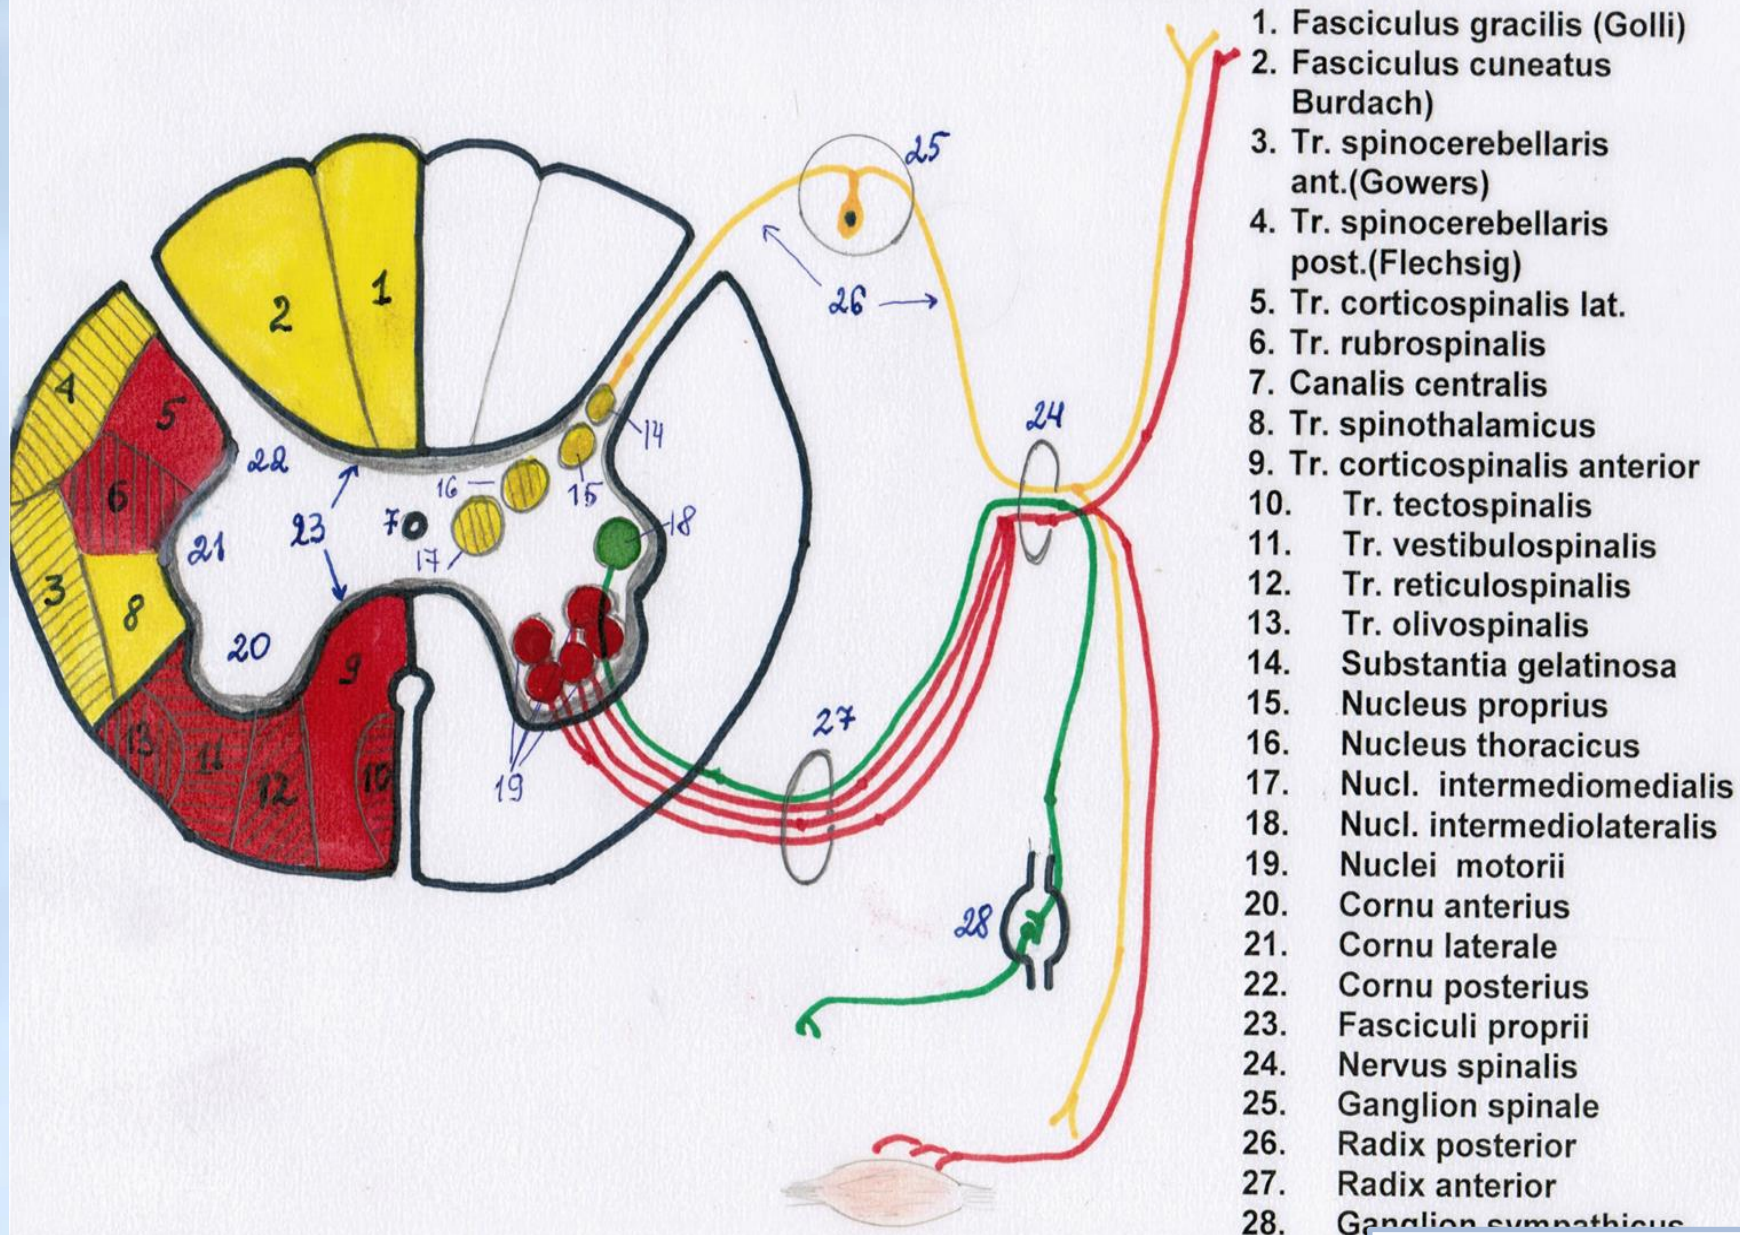 1. Fasciculus gracilis (Golli)
2. Fasciculus cuneatus
Burdach)
3. Tr. spinocerebellaris
ant.(Gowers)
4. Tr. spinocerebellaris
post.(Flechsig)
5. Tr. corticospinalis lat.
6. Tr. rubrospinalis
7. Canalis centralis
8. Tr. spinothalamicus
9. Tr. corticospinalis anterior
10. Tr. tectospinalis
11. Tr. vestibulospinalis
12. Tr. reticulospinalis
13. Tr. olivospinalis
14. Substantia gelatinosa
15. Nucleus proprius
16. Nucleus thoracicus
17. Nucl. intermediomedialis
18. Nucl. intermediolateralis
19. Nuclei motorii
20. Cornu anterius
21. Cornu laterale
22. Cornu posterius
23. Fasciculi proprii
24. Nervus spinalis
25. Ganglion spinale
26. Radix posterior
27. Radix anterior
28. Ganglion sympathicus
25
1
2
26
4
5
24
14
22
16
15
6
23
7
18
21
17
3
8
20
9
27
13
11
12
10
19
28